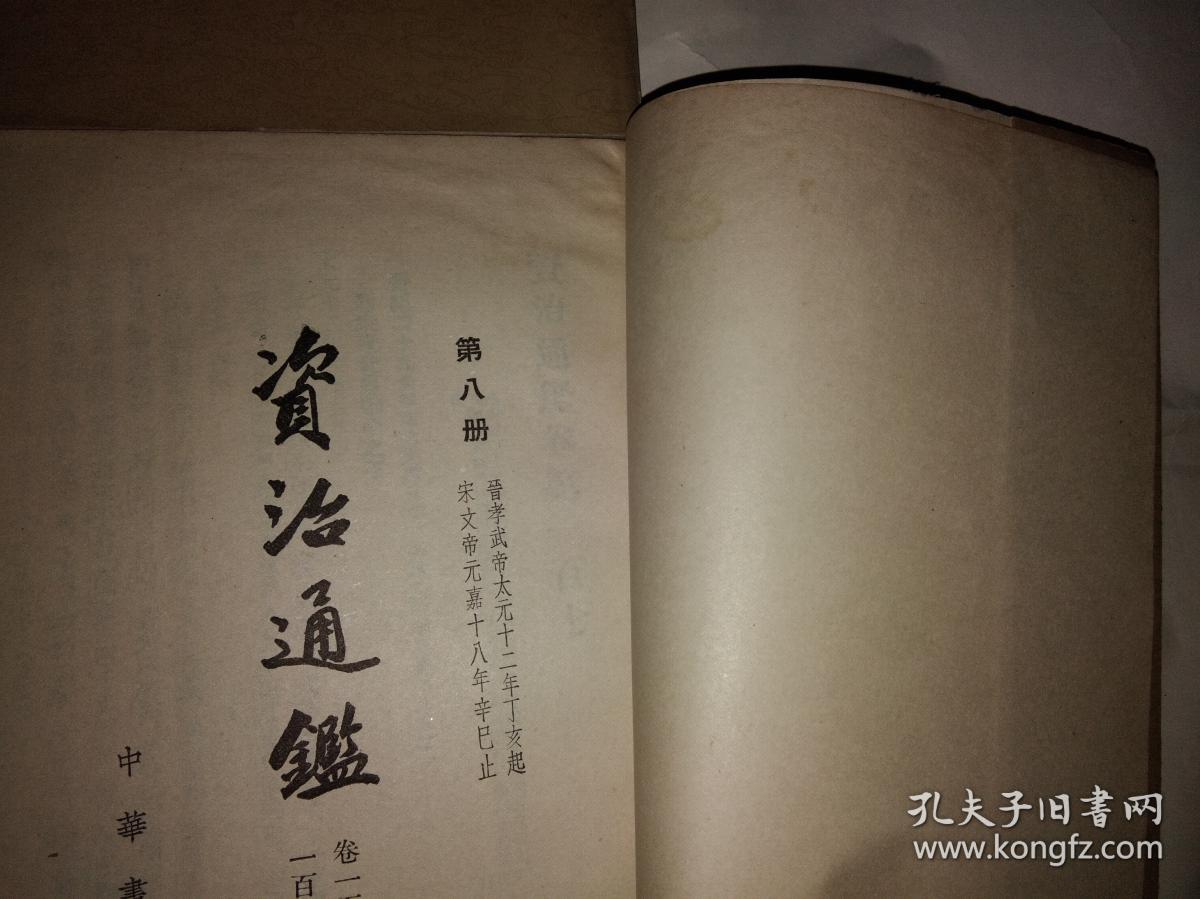 第八册
晉孝武帝太元十二年丁亥起
宋文帝元嘉十八年辛巳止
資治通鑑
卷一
一百
中華書
孔夫子旧書网
www.kongfz.com